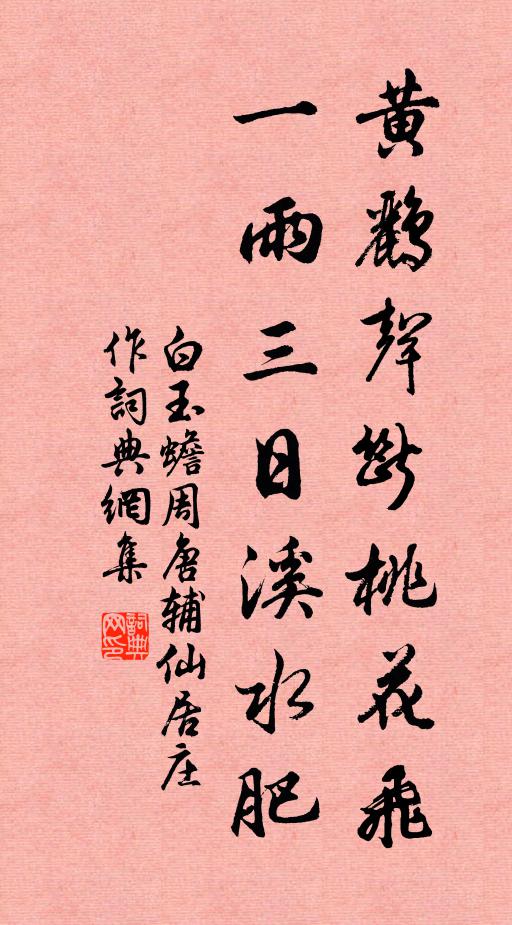 黃鸝聲斷桃花飛
一雨三日溪水肥
白玉蟾周唐辅仙居庄
作詞典網集
詞典
网印